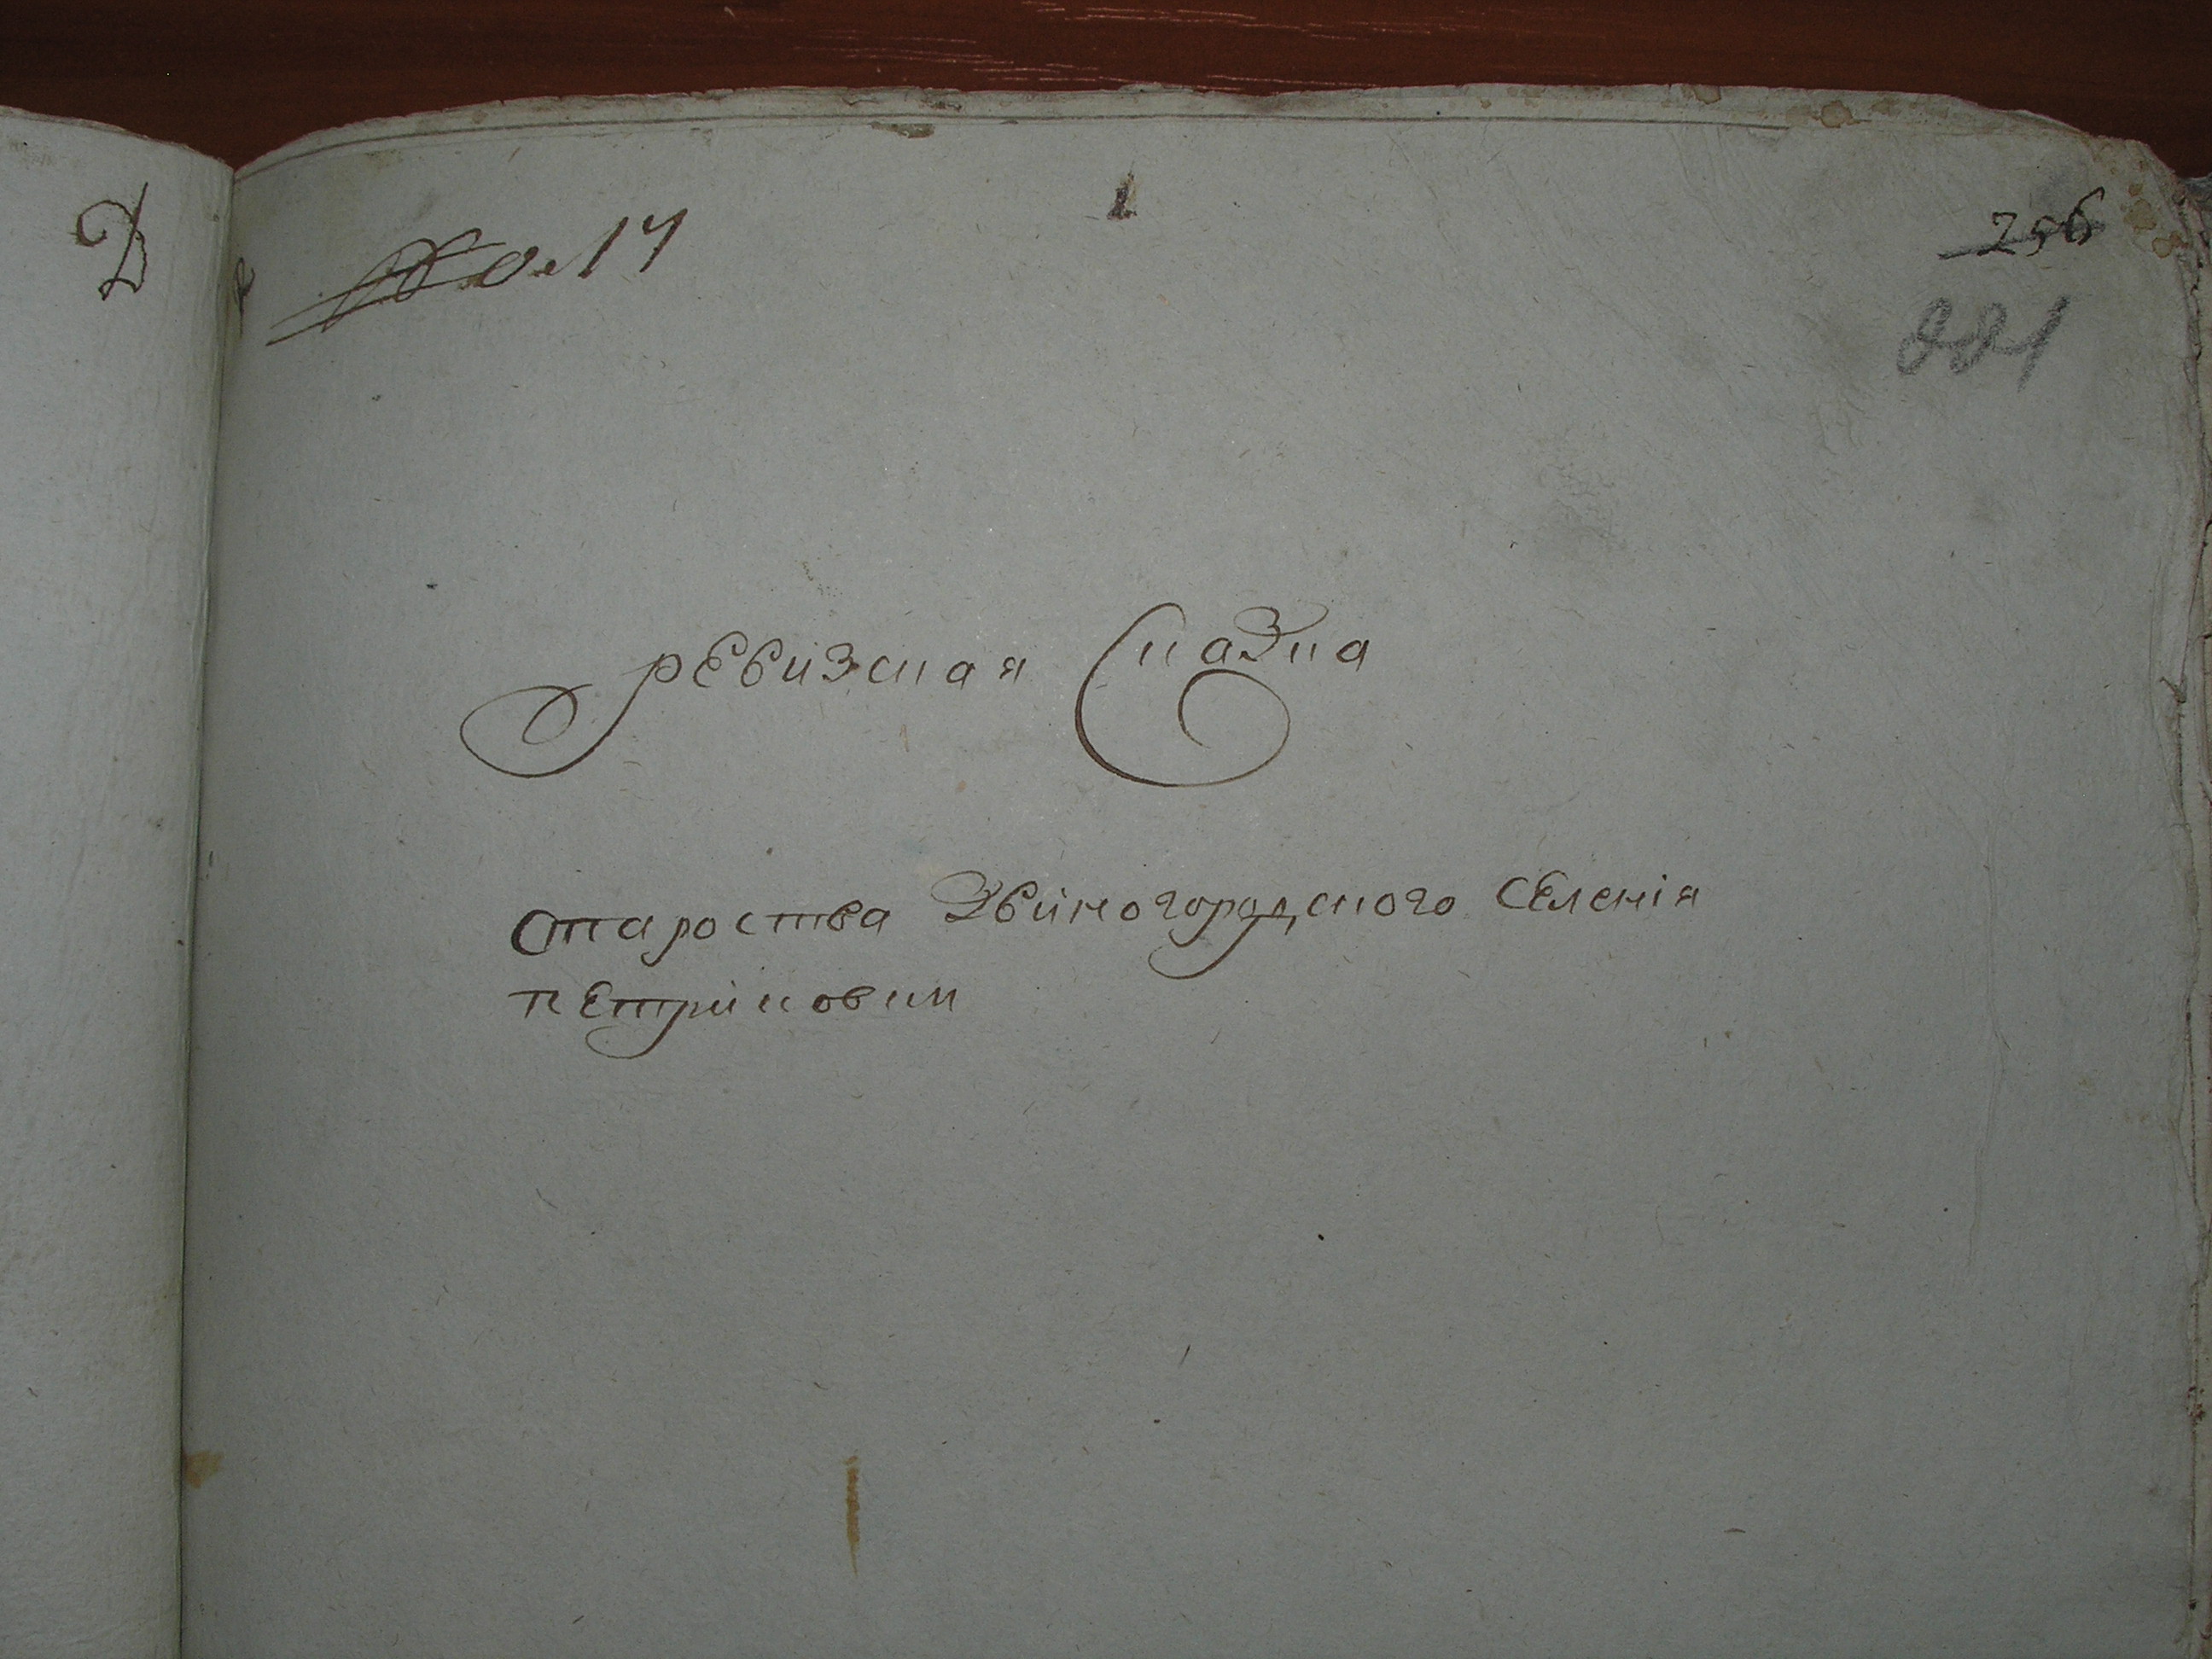 Д
№ 17
1
256
221
ревизская Сказка
Староства Звиногородского Селенія
петриковки